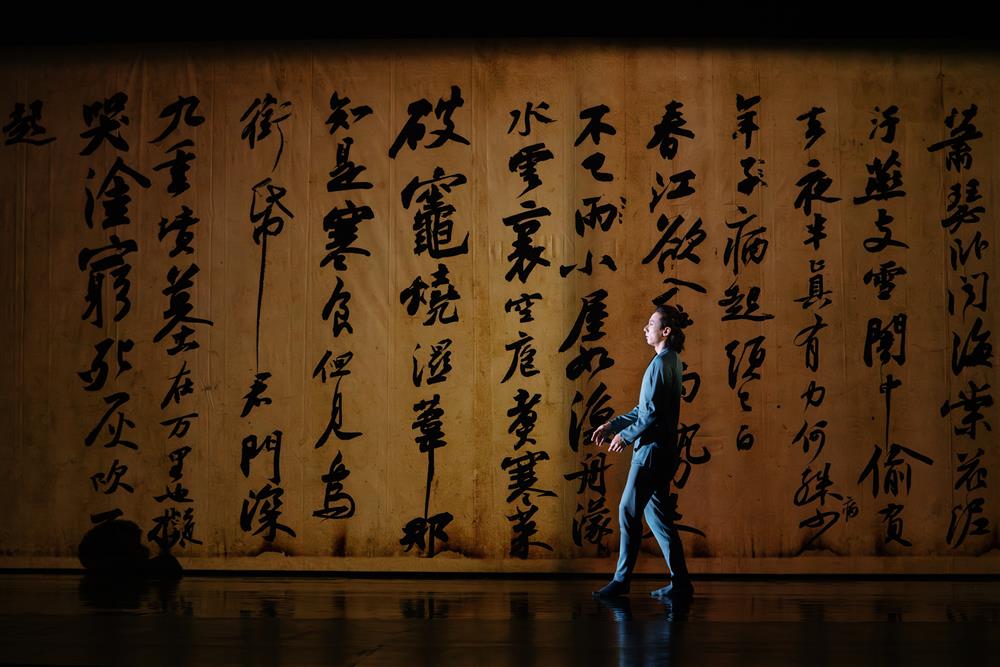 蕭瑟臥聞海棠花泥
汙燕支雪闇中偷負
去夜半真有力何殊少病
年子病起須已白
春江欲入雨勢來
不已雨小屋如漁舟濛
水雲裏空庖煑寒菜
破竈燒濕葦那
知是寒食但見烏
銜帋君門深
九重墳墓在万里也擬
哭塗窮死灰吹不
起